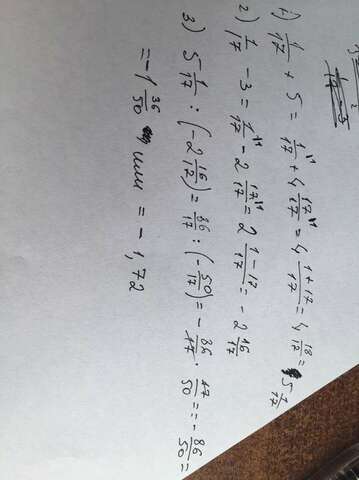 1) 1/17 + 5 = 1/17 + 4 17/17 = 4 (1+17)/17 = 4 18/17 = 5 1/17
2) 1/17 - 3 = 1/17 - 2 17/17 = 2 (1-17)/17 = - 2 16/17
3) 5 1/17 : (-2 16/17) = 86/17 : (-50/17) = - 86/17 · 17/50 = = - 86/50 =
= - 1 36/50 или = - 1,72